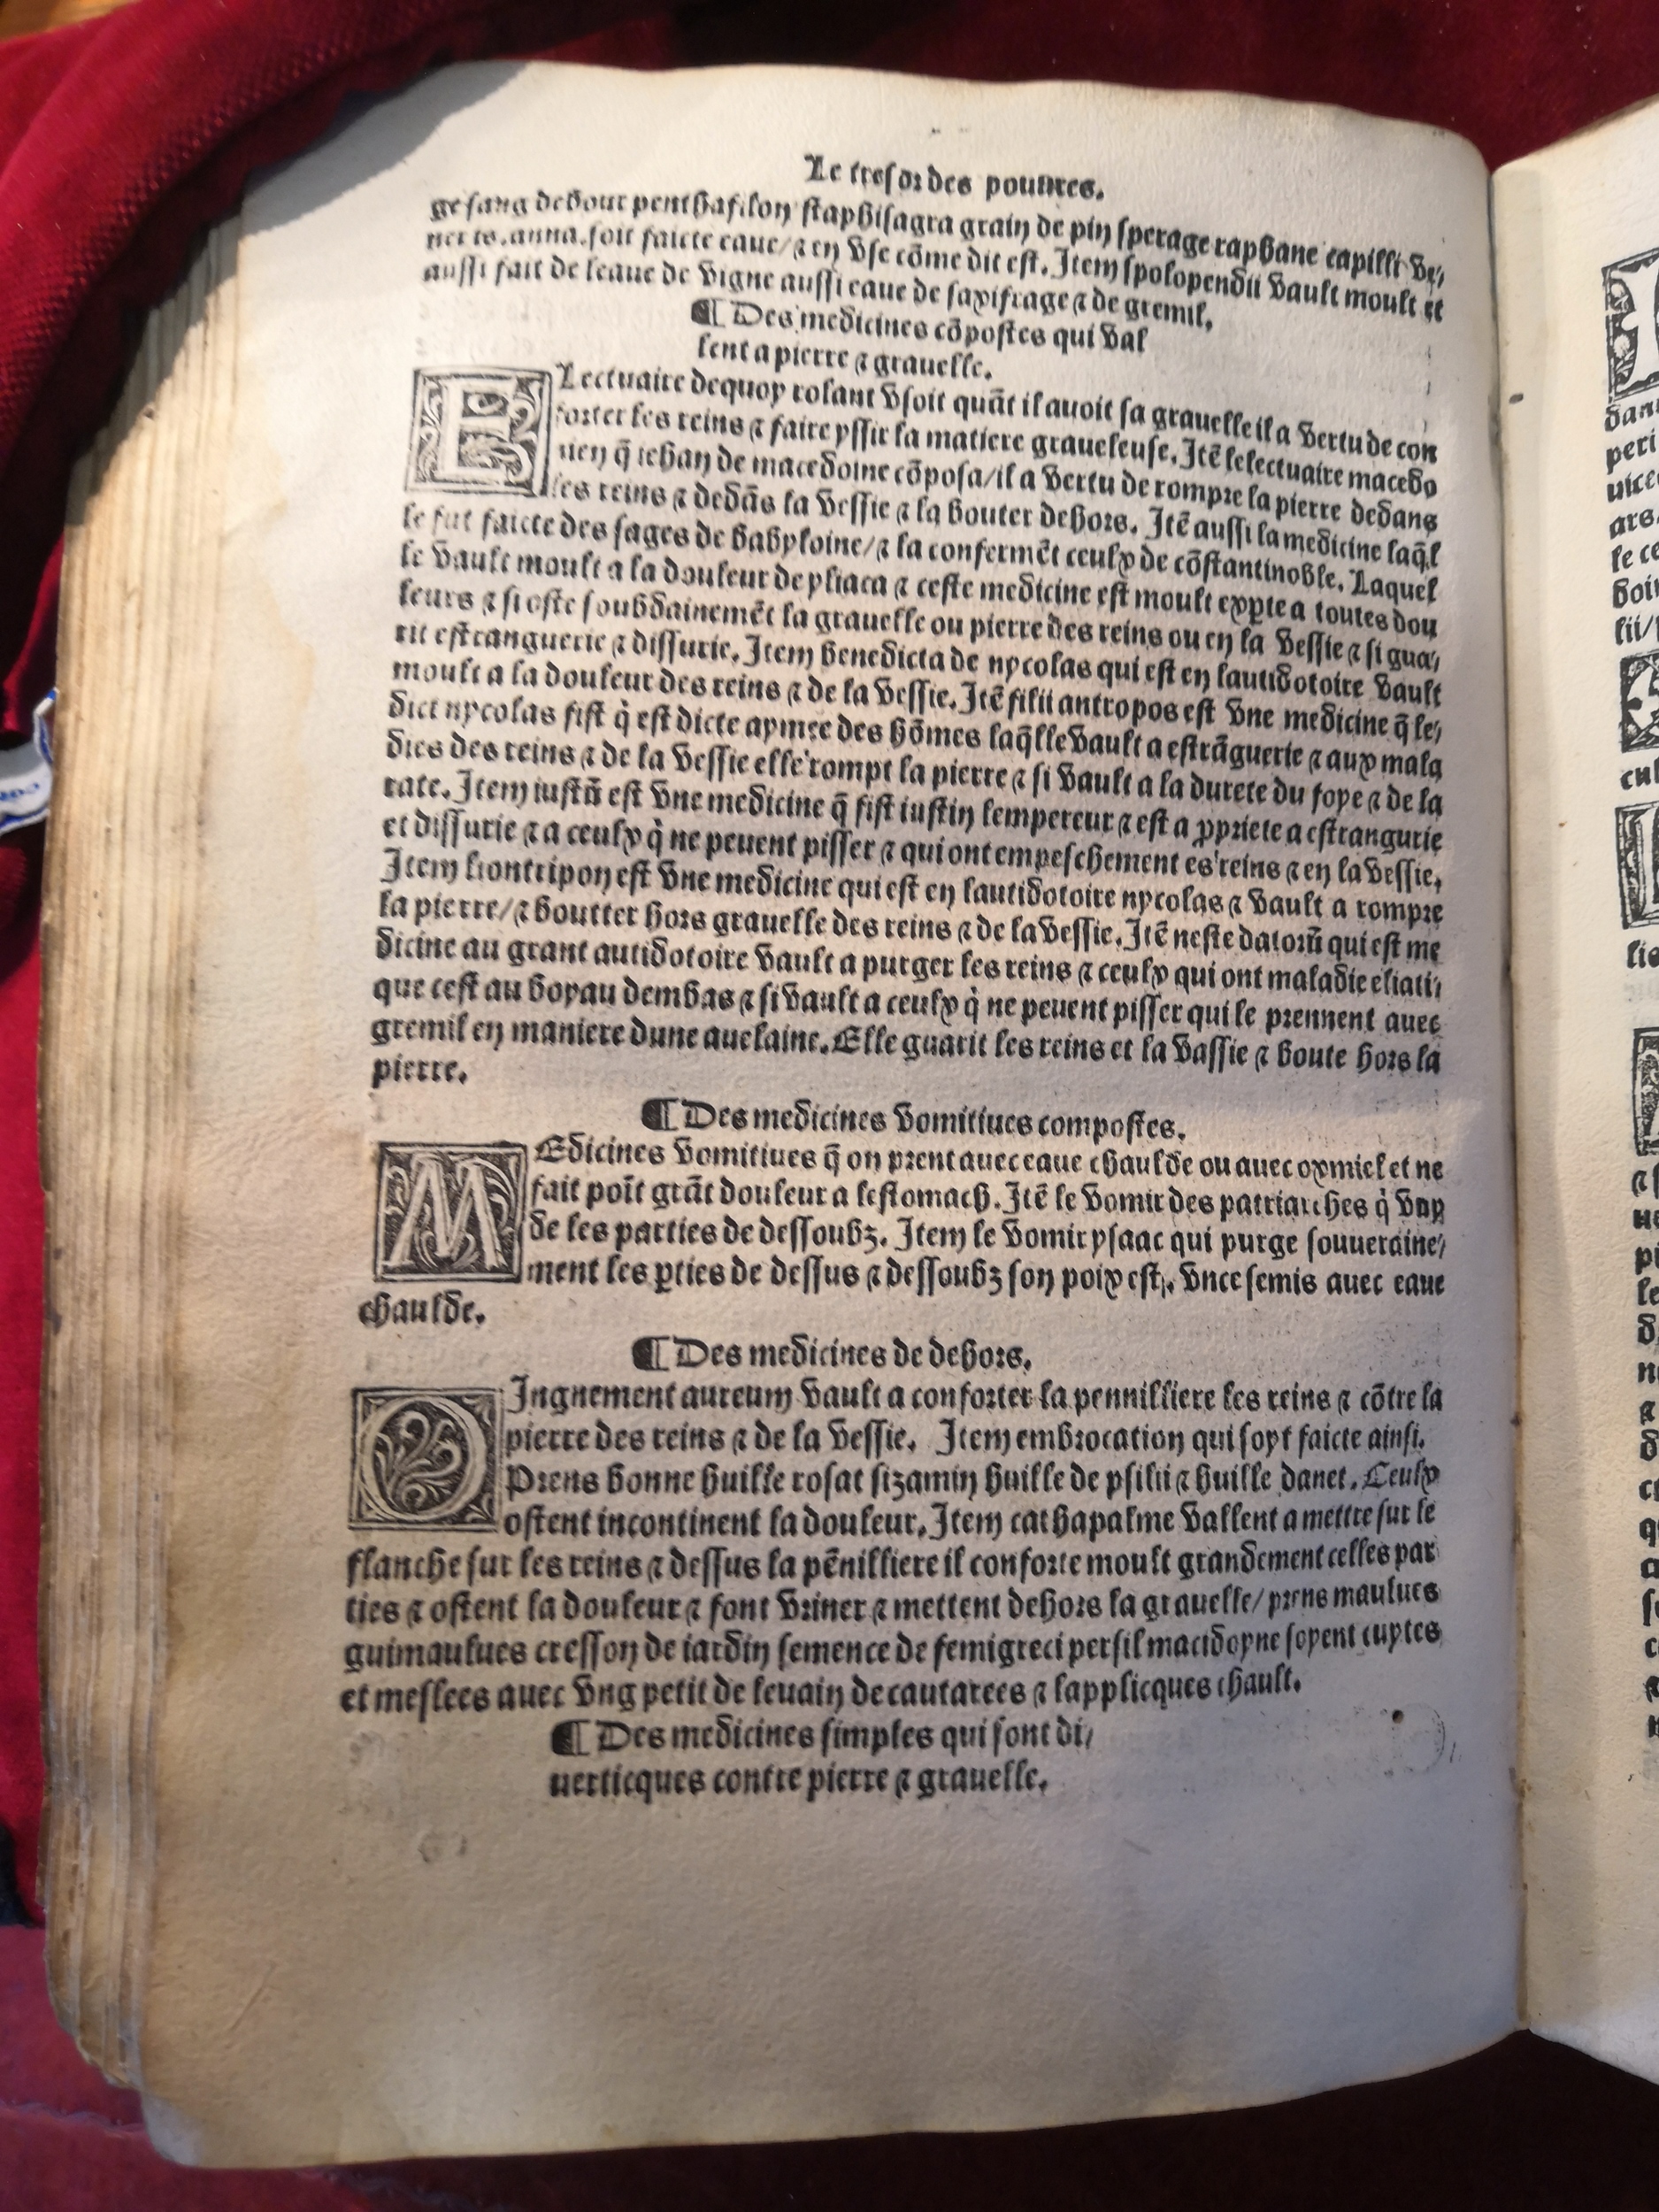 Le tresor des poures.
ge sang debouc penthafilon staphisagra grain de pin sperage raphane capilli ve/
neris.anna.soit faicte eaue/⁊ en vse cõme dit est. Item spolopendii vault moult et
aussi fait de leaue de vigne aussi eaue de saxifrage ⁊ de gremil.
¶ Des medicines cõpostes qui val
lent a pierre ⁊ grauelle.
ELectuaire dequoy rolant vsoit quãt il auoit sa grauelle il a vertu de con
forter les reins ⁊ faire yssir la matiere graueleuse. Itẽ lelectuaire macedo
nien q̃ iehan de macedoine cõposa/il a vertu de rompre la pierre dedans
les reins ⁊ dedãs la vessie ⁊ la bouter dehors. Itẽ aussi la medicine laq̃l
le fut faicte des sages de babyloine/⁊ la confermẽt ceulx de cõstantinoble. Laquel
le vault moult a la douleur de yliaca ⁊ ceste medicine est moult exꝑte a toutes dou
leurs ⁊ si oste soubdainemẽt la grauelle ou pierre des reins ou en la vessie ⁊ si gua/
rit estranguerie ⁊ dissurie. Item benedicta de nycolas qui est en lautidotoire vault
moult a la douleur des reins ⁊ de la vessie. Itẽ filii antropos est vne medicine q̃ le/
dict nycolas fist q̇ est dicte aymee des hõmes laq̃lle vault a estrãguerie ⁊ aux mala
dies des reins ⁊ de la vessie elle rompt la pierre ⁊ si vault a la durete du foye ⁊ de la
rate. Item iustũ est vne medicine q̃ fist iustin lempereur ⁊ est a ꝓpriete a estrangurie
et dissurie ⁊ a ceulx q̇ ne peuent pisser ⁊ qui ont empeschement es reins ⁊ en la vessie.
Item liontripon est vne medicine qui est en lautidotoire nycolas ⁊ vault a rompre
la pierre/⁊ boutter hors grauelle des reins ⁊ de la vessie. Itẽ neste datorũ qui est me
dicine au grant autidotoire vault a purger les reins ⁊ ceulx qui ont maladie eliati/
que cest au boyau dembas ⁊ si vault a ceulx q̇ ne peuent pisser qui le prennent auec
gremil en maniere dune auelaine. Elle guarit les reins et la vassie ⁊ boute hors la
pierre.
¶ Des medicines vomitiues compostes.
MEdicines vomitiues q̃ on prent auec eaue chaulde ou auec oxmiel et ne
fait poĩt grãt douleur a lestomach. Itẽ le vomir des patriarches q̇ vuy
de les parties de dessoubz. Item le vomir ysaac qui purge souueraine/
ment les ꝑties de dessus ⁊ dessoubz son poix est.j. vnce semis auec eaue
chaulde.
¶ Des medicines de dehors.
OIngnement aureum vault a conforter la pennilliere les reins ⁊ cõtre la
pierre des reins ⁊ de la vessie. Item embrocation qui soyt faicte ainsi.
Prens bonne huille rosat sizamin huille de psilii ⁊ huille danet. Ceulx
ostent incontinent la douleur. Item cathapalme vallent a mettre sur le
flanche sur les reins ⁊ dessus la pẽnilliere il conforte moult grandement celles par
ties ⁊ ostent la douleur ⁊ font vriner ⁊ mettent dehors la grauelle/ prens maulues
guimaulues cresson de iardin semence de femigreci persil macidoyne soyent cuytes
et meslees auec vng petit de leuain de cautarees ⁊ lapplicques chault.
¶ Des medicines simples qui sont di/
uerticques contre pierre ⁊ grauelle.